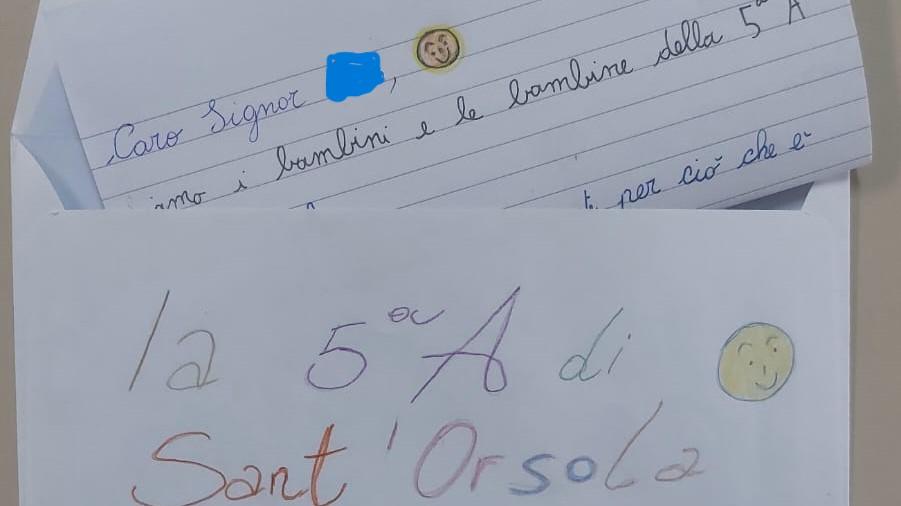 Caro Signor ,
i bambini e le bambine della 5ª A
per ciò che è
la 5ª A di
Sant'Orsola